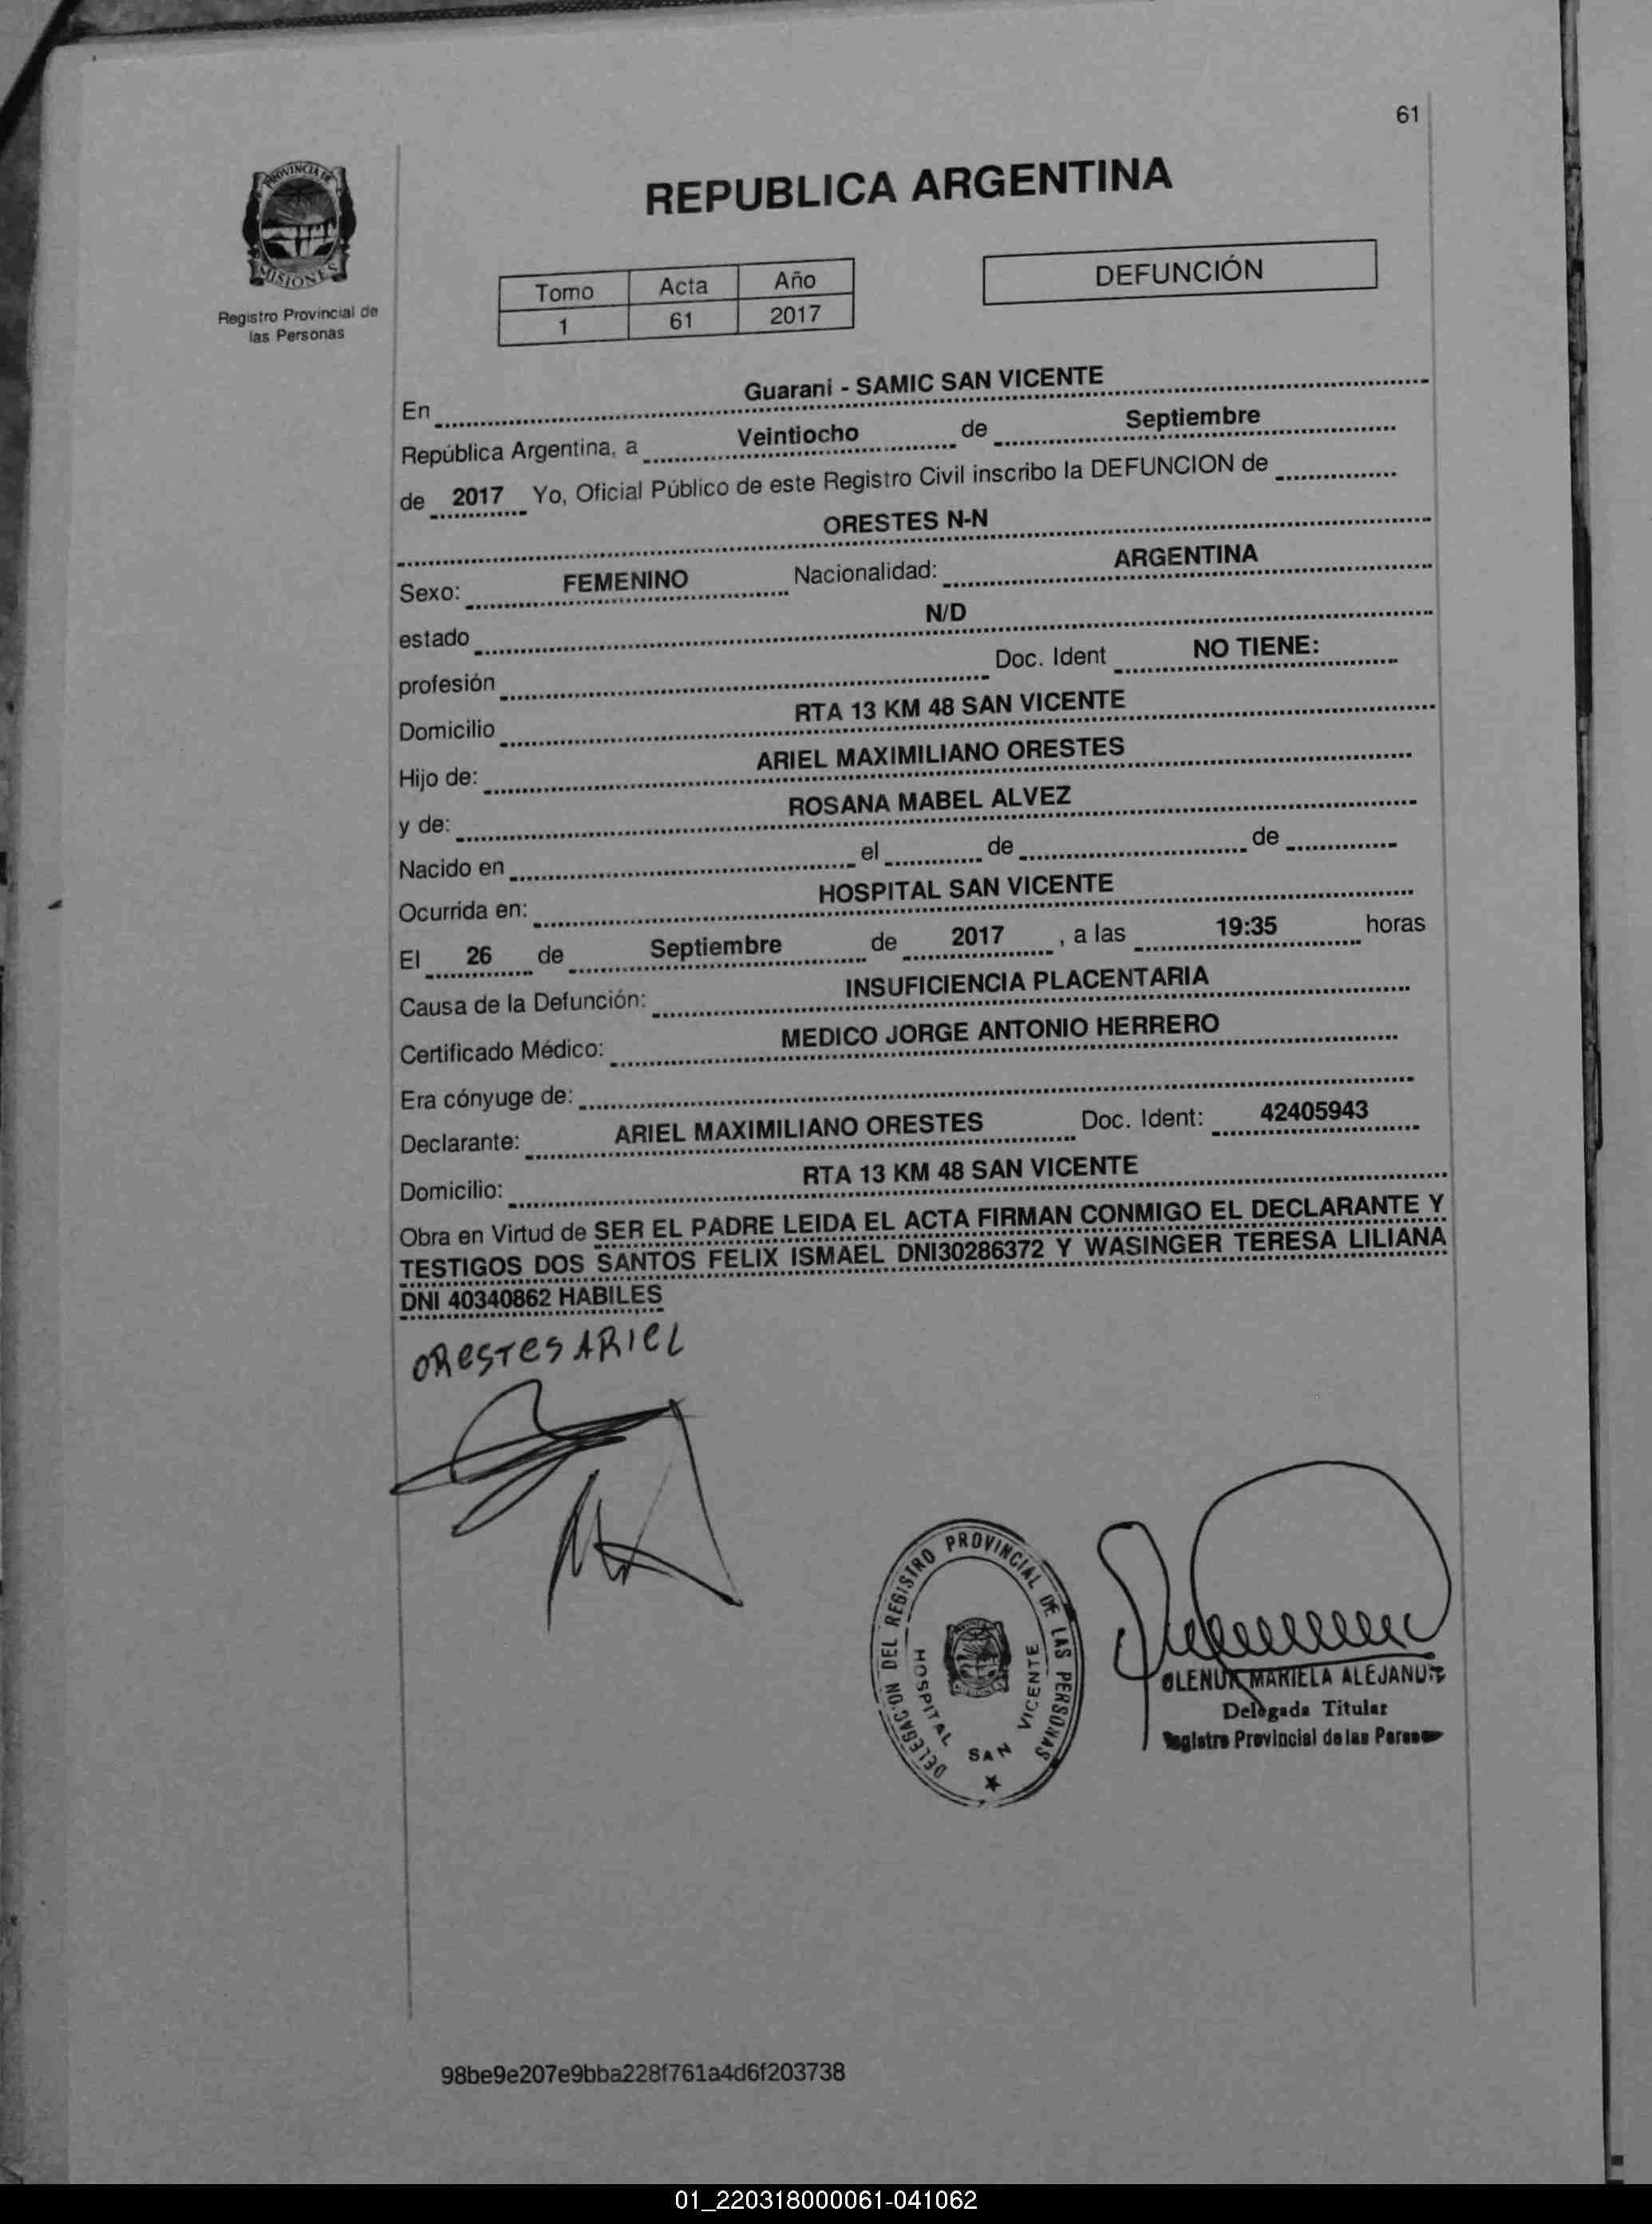 61
PROVINCIA DE
MISIONES
Registro Provincial de
las Personas
REPUBLICA ARGENTINA
Tomo Acta Año
1 61 2017
DEFUNCIÓN
En Guarani - SAMIC SAN VICENTE
República Argentina, a Veintiocho de Septiembre
de 2017 Yo, Oficial Público de este Registro Civil inscribo la DEFUNCION de
ORESTES N-N
Sexo: FEMENINO Nacionalidad: ARGENTINA
estado N/D
profesión Doc. Ident NO TIENE:
Domicilio RTA 13 KM 48 SAN VICENTE
Hijo de: ARIEL MAXIMILIANO ORESTES
y de: ROSANA MABEL ALVEZ
Nacido en el de de
Ocurrida en: HOSPITAL SAN VICENTE
El 26 de Septiembre de 2017 , a las 19:35 horas
Causa de la Defunción: INSUFICIENCIA PLACENTARIA
Certificado Médico: MEDICO JORGE ANTONIO HERRERO
Era cónyuge de:
Declarante: ARIEL MAXIMILIANO ORESTES Doc. Ident: 42405943
Domicilio: RTA 13 KM 48 SAN VICENTE
Obra en Virtud de SER EL PADRE LEIDA EL ACTA FIRMAN CONMIGO EL DECLARANTE Y
TESTIGOS DOS SANTOS FELIX ISMAEL DNI30286372 Y WASINGER TERESA LILIANA
DNI 40340862 HABILES
ORESTES ARIEL
DELEGACION DEL REGISTRO PROVINCIAL DE LAS PERSONAS
HOSPITAL SAN VICENTE
MARIELA
Delegada Titular
Provincial de las
98be9e207e9bba228f761a4d6f203738
01_220318000061-041062